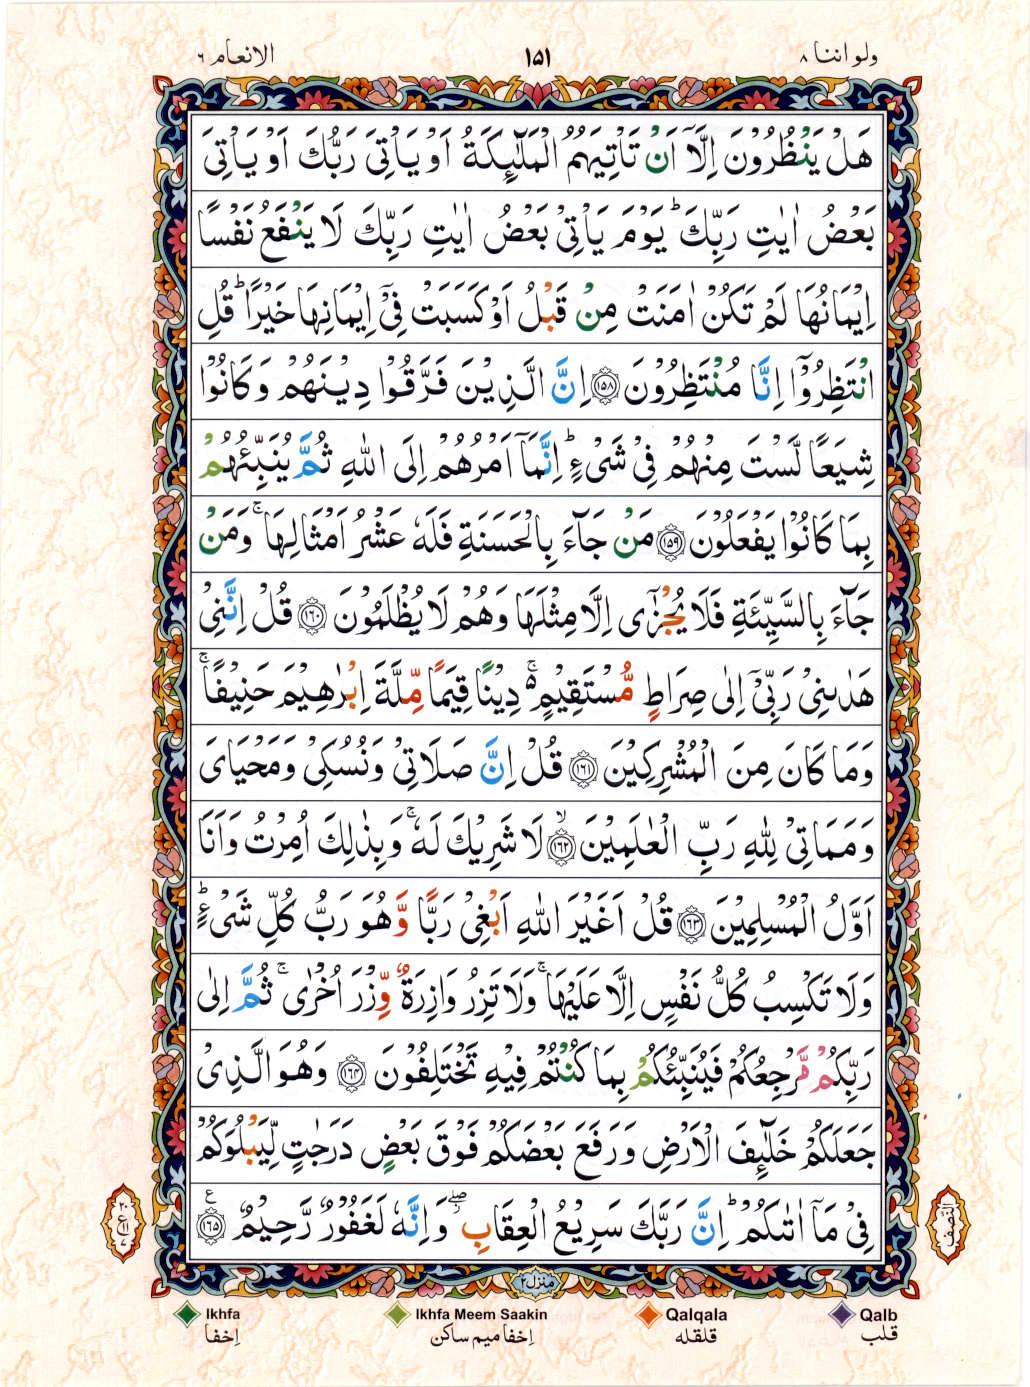 ولو اننا ۸
۱۵۱
الانعام ۶
هَلْ يَنْظُرُوْنَ اِلَّاۤ اَنْ تَاْتِيَهُمُ الْمَلٰٓئِكَةُ اَوْ يَاْتِيَ رَبُّكَ اَوْ يَاْتِيَ
بَعْضُ اٰيٰتِ رَبِّكَ ؕ يَوْمَ يَاْتِيْ بَعْضُ اٰيٰتِ رَبِّكَ لَا يَنْفَعُ نَفْسًا
اِيْمَانُهَا لَمْ تَكُنْ اٰمَنَتْ مِنْ قَبْلُ اَوْ كَسَبَتْ فِيْۤ اِيْمَانِهَا خَيْرًا ؕ قُلِ
انْتَظِرُوْۤا اِنَّا مُنْتَظِرُوْنَ ﴿۱۵۸﴾ اِنَّ الَّذِيْنَ فَرَّقُوْا دِيْنَهُمْ وَ كَانُوْا
شِيَعًا لَّسْتَ مِنْهُمْ فِيْ شَيْءٍ ؕ اِنَّمَاۤ اَمْرُهُمْ اِلَى اللّٰهِ ثُمَّ يُنَبِّئُهُمْ
بِمَا كَانُوْا يَفْعَلُوْنَ ﴿۱۵۹﴾ مَنْ جَآءَ بِالْحَسَنَةِ فَلَهٗ عَشْرُ اَمْثَالِهَا ۚ وَ مَنْ
جَآءَ بِالسَّيِّئَةِ فَلَا يُجْزٰۤى اِلَّا مِثْلَهَا وَ هُمْ لَا يُظْلَمُوْنَ ﴿۱۶۰﴾ قُلْ اِنَّنِيْ
هَدٰىنِيْ رَبِّيْۤ اِلٰى صِرَاطٍ مُّسْتَقِيْمٍ ۚ دِيْنًا قِيَمًا مِّلَّةَ اِبْرٰهِيْمَ حَنِيْفًا ۚ
وَ مَا كَانَ مِنَ الْمُشْرِكِيْنَ ﴿۱۶۱﴾ قُلْ اِنَّ صَلَاتِيْ وَ نُسُكِيْ وَ مَحْيَايَ
وَ مَمَاتِيْ لِلّٰهِ رَبِّ الْعٰلَمِيْنَ ﴿۱۶۲﴾ۙ لَا شَرِيْكَ لَهٗ ۚ وَ بِذٰلِكَ اُمِرْتُ وَ اَنَا
اَوَّلُ الْمُسْلِمِيْنَ ﴿۱۶۳﴾ قُلْ اَغَيْرَ اللّٰهِ اَبْغِيْ رَبًّا وَّ هُوَ رَبُّ كُلِّ شَيْءٍ ؕ
وَ لَا تَكْسِبُ كُلُّ نَفْسٍ اِلَّا عَلَيْهَا ۚ وَ لَا تَزِرُ وَازِرَةٌ وِّزْرَ اُخْرٰى ۚ ثُمَّ اِلٰى
رَبِّكُمْ مَّرْجِعُكُمْ فَيُنَبِّئُكُمْ بِمَا كُنْتُمْ فِيْهِ تَخْتَلِفُوْنَ ﴿۱۶۴﴾ وَ هُوَ الَّذِيْ
جَعَلَكُمْ خَلٰٓئِفَ الْاَرْضِ وَ رَفَعَ بَعْضَكُمْ فَوْقَ بَعْضٍ دَرَجٰتٍ لِّيَبْلُوَكُمْ
فِيْ مَاۤ اٰتٰىكُمْ ؕ اِنَّ رَبَّكَ سَرِيْعُ الْعِقَابِ ۖ وَ اِنَّهٗ لَغَفُوْرٌ رَّحِيْمٌ ﴿۱۶۵﴾ ع
النصف
منزل ۲
Ikhfa
Ikhfa Meem Saakin
Qalqala
Qalb
اِخفا
اِخفا میم ساکن
قلقله
قلب